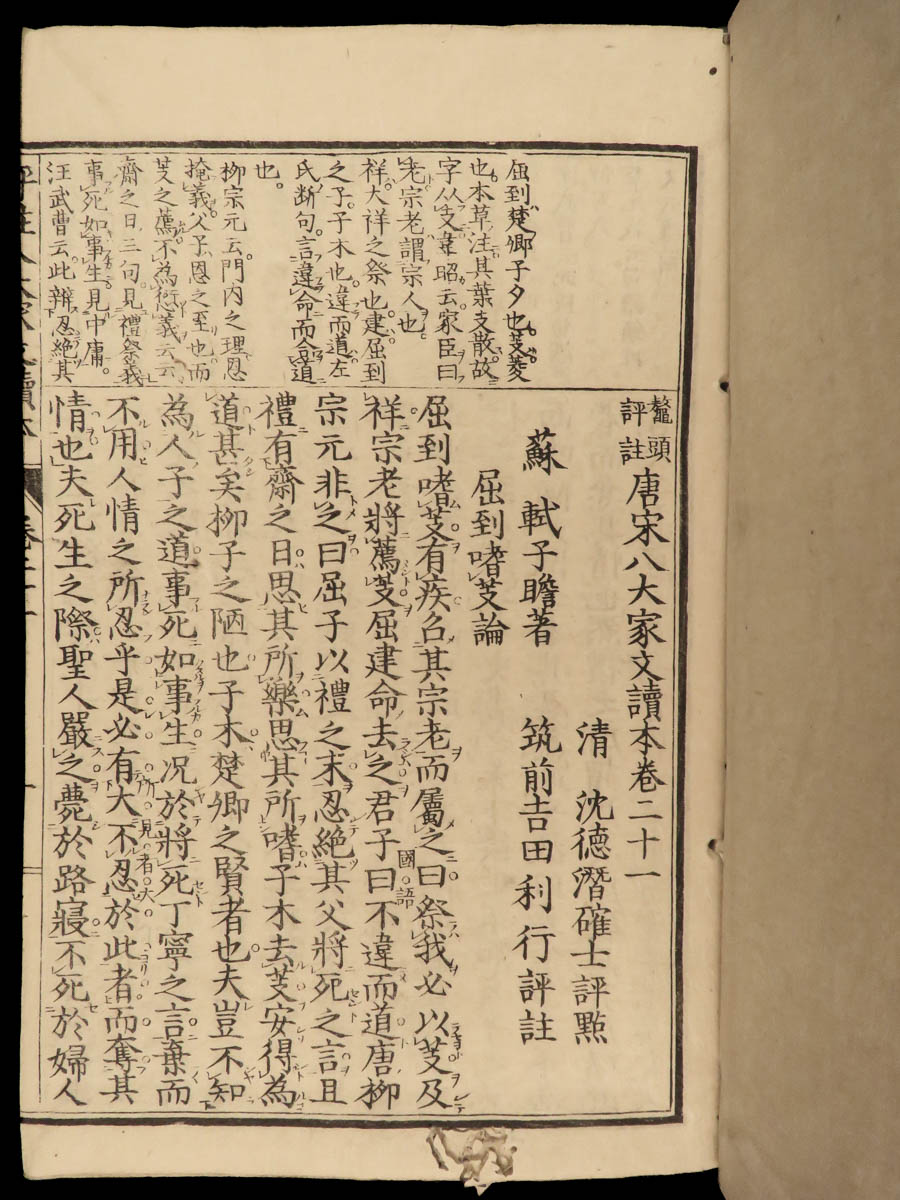 鼇頭
評註
唐宋八大家文讀本卷二十一
清　沈德潛確士評點
蘇軾子瞻著　筑前吉田利行評註
屈到嗜芰論
屈到嗜芰有疾召其宗老而屬之曰祭我必以芰及
祥宗老將薦芰屈建命去之君子曰不違而道唐柳
國語
宗元非之曰屈子以禮之末忍絕其父將死之言且
禮有齋之日思其所樂思其所嗜子木去芰安得為
道甚矣柳子之陋也子木楚卿之賢者也夫豈不知
為人子之道事死如事生況於將死丁寧之言棄而
不用人情之所忍乎是必有大不忍於此者而奪其
所見者大
情也夫死生之際聖人嚴之薨於路寢不死於婦人
屈到楚卿子夕也芰菱
也本草注其葉支散故
字从支韋昭云家臣曰
老宗老謂宗人也
祥大祥之祭也建屈到
之子子木也違而道左
氏斷句言違命而合道
也
柳宗元云門內之理恩
掩義父子恩之至也而
芰之薦不為愆義云云
齋之日三句見禮祭義
事死如事生見中庸
汪武曹云此辨忍絕其